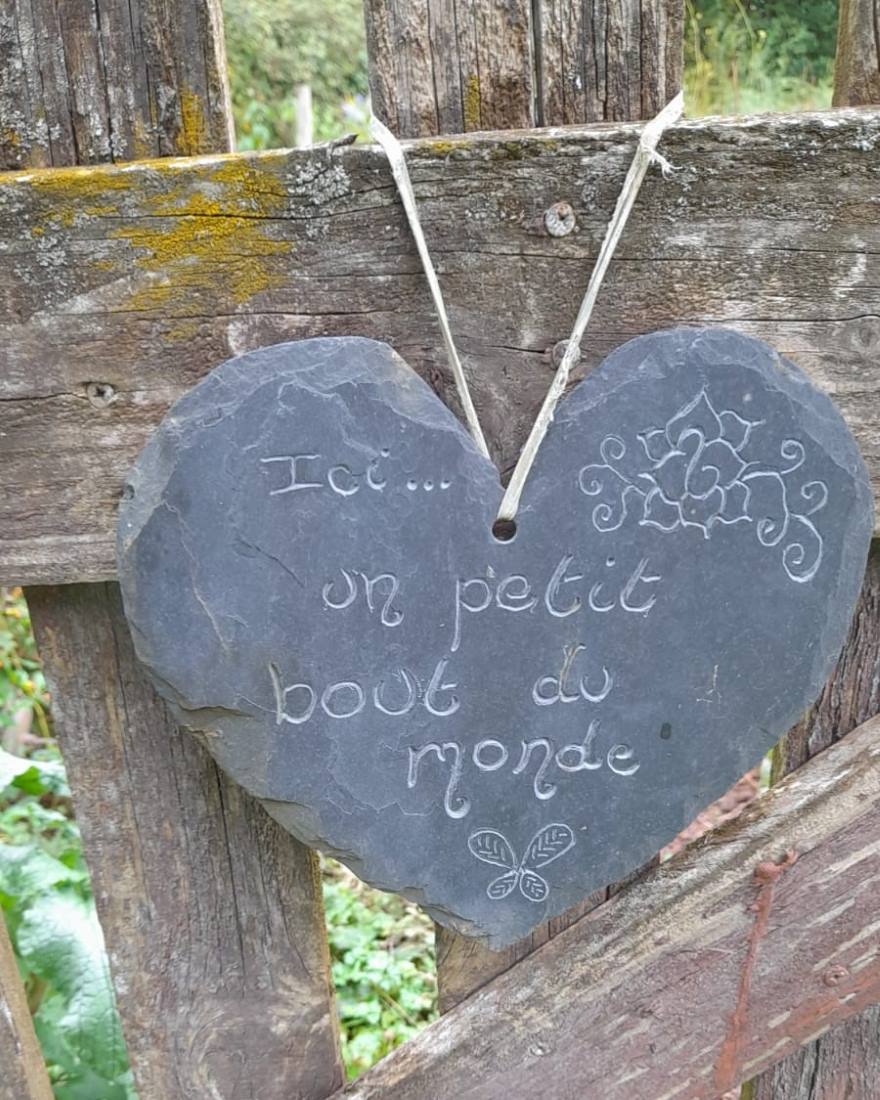 Ici...
un petit
bout du
monde